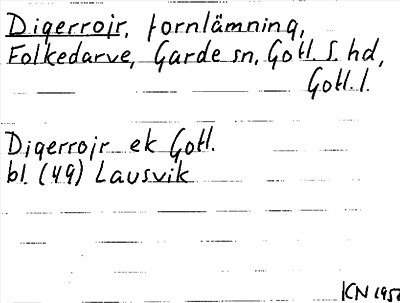 Digerrojr, fornlämning,
Folkedarve, Garde sn, Gotl. S. hd,
Gotl. l.
Digerrojr ek Gotl.
bl. (49) Lausvik
KN